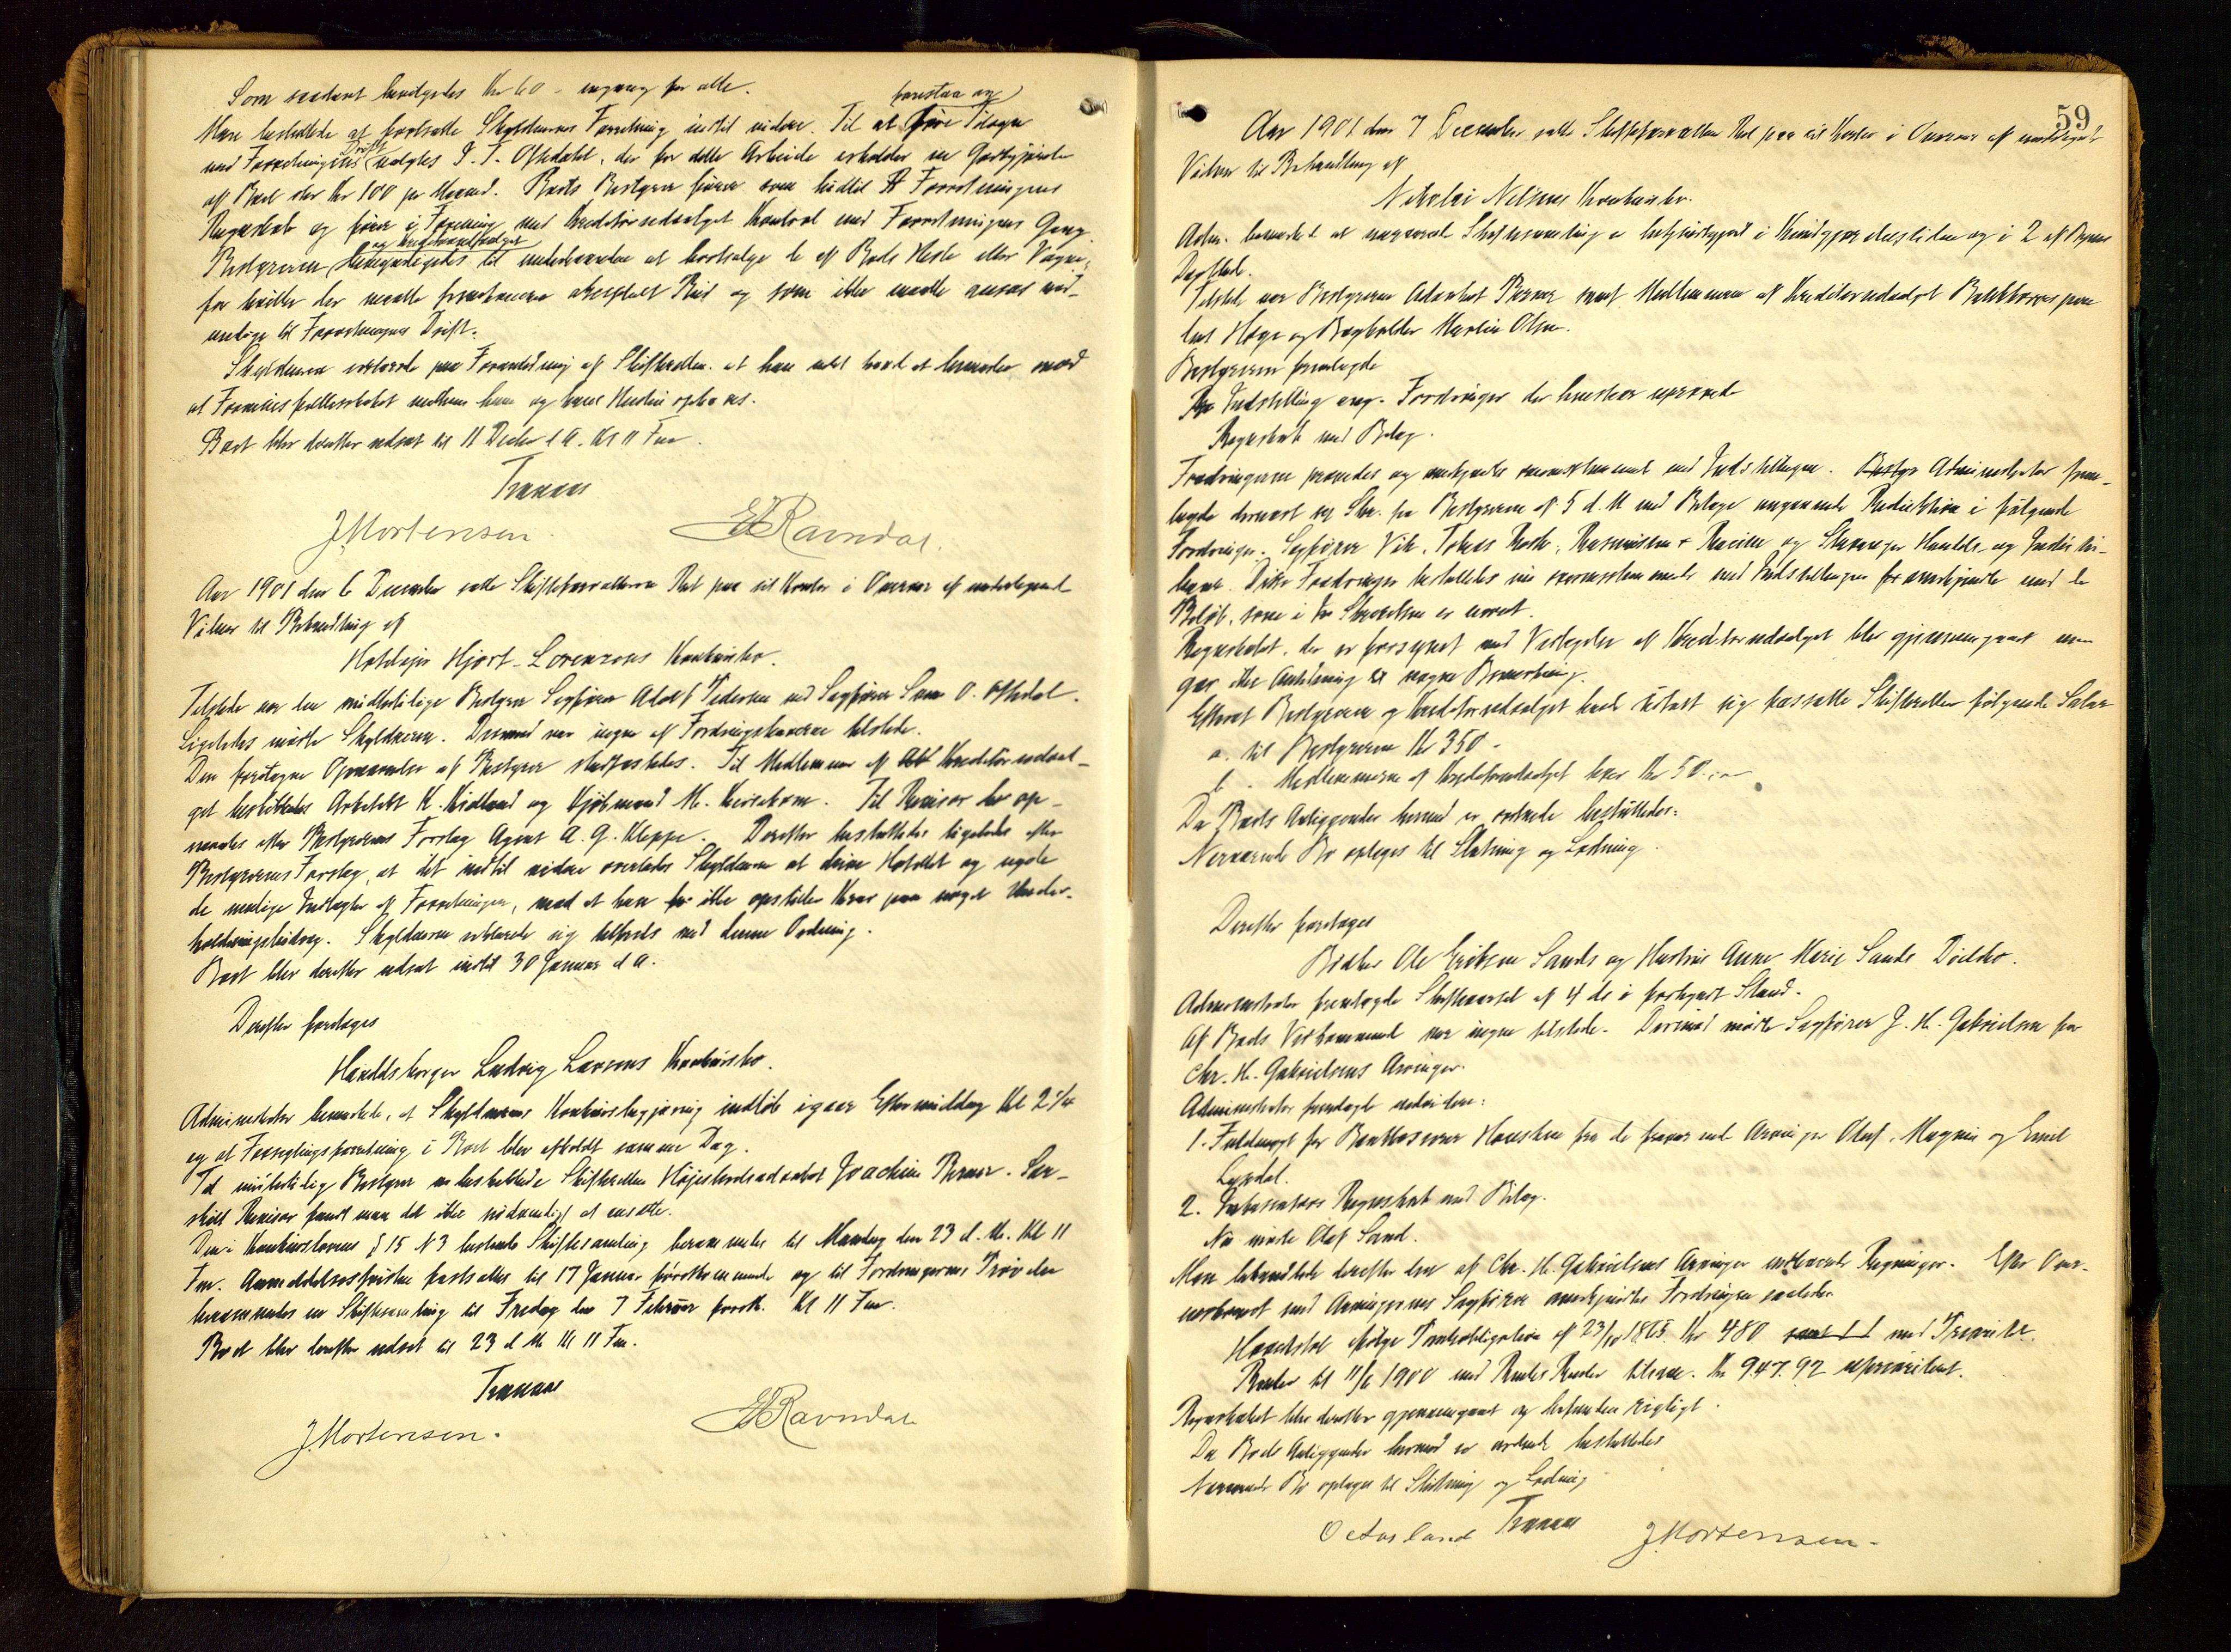 Som saadant bevilgedes Kr 60 - engang for alle.
forestaa og
Man besluttede at fortsætte Skyldnerens Forretning indtil videre. Til at føre Tilsyn
Drift
med Forretningens valgtes J. T. Oftedahl, der for dette Arbeide erholder en Godtgjørelse
af Boet stor Kr 100 pr Maaned. Boets Bestyrer fører som hidtil Forretningens
Regnskab og fører i Forening med Kreditorudvalget Kontrol med Forretningens Gang.
og Kreditorudvalget
Bestyreren bemyndigedes til underhaanden at bortsælge de af Boets Heste eller Vogne,
for hvilke der maatte fremkomme akceptabelt Bud og som ikke maatte ansees nød-
vendige til Forretningens Drift.
Skyldneren erklærede paa Foranledning af Skifteretten at han intet havde at bemærke mod
at Formuesfællesskabet mellem ham og hans Hustru ophæves.
Boet blev derefter udsat til 11 Decbr d A. Kl 11 Fm.
Tranaas
J. Mortensen. E Ravndal.
Aar 1901 den 6 December satte Skifteforvalteren Ret paa sit Kontor i Overvær af undertegnede
Vidner til Behandling af
Hoteleier Hjort-Lorenzens Konkursbo.
Tilstede var den midlertidige Bestyrer Sagfører Adolf Pedersen ved Sagfører Sven O. Oftedal.
Ligeledes mødte Skyldneren. Derimod var ingen af Fordringshaverne tilstede.
Den foretagne Opnævnelse af Bestyrer stadfæstedes. Til Medlemmer af Kreditorudval-
get beskikkedes Arkitekt K. Midland og Kjøbmand M. Meidelborn. Til Revisor op-
nævntes efter Bestyrerens Forslag Agent A. G. Kleppe. Derefter besluttedes ligeledes efter
Bestyrerens Forslag, at det indtil videre overlades Skyldneren at drive Hotellet og nyde
de mulige Indtægter af Forretningen, mod at han ikke opstiller Krav paa noget Under-
holdningsbidrag. Skyldneren erklærede sig tilfreds med denne Ordning.
Boet blev derefter udsat indtil 30 Januar d A.
Derefter foretoges
Handelsborger Ludvig Larsens Konkursbo.
Administrator bemærkede, at Skyldnerens Konkursbegjæring indløb igaar Eftermiddag Kl 2 1/4
og at Forseglingsforretning i Boet blev afholdt samme Dag.
Til midlertidig Bestyrer beskikkede Skifteretten Høiesteretsadvokat Joachim Berner. Sær-
skilt Revisor fandt man det ikke nødvendigt at ansætte.
Den i Konkurslovens § 15 N 3 bestemte Skiftesamling berammedes til Mandag den 23 d. M. Kl 11
Fm. Anmeldelsesfristen fastsattes til 17 Januar førstkommende og til Fordringernes Prøvelse
berammedes en Skiftesamling til Fredag den 7 Februar førstk. Kl 11 Fm.
Boet blev derefter udsat til 23 d M. Kl 11 Fm.
Tranaas
J. Mortensen. E Ravndal
59
Aar 1901 den 7 December satte Skifteforvalteren Ret paa sit Kontor i Overvær af undertegnede
Vidner til Behandling af
Nikolai Nelsens Konkursbo.
Adm. bemærkede at nærværende Skiftesamling er bekjendtgjort i Kundgjørelsestidende og i 2 af Byens
Dagblade.
Tilstede var Bestyreren Advokat Berner samt Medlemmerne af Kreditorudvalget
Høye og Bogholder Martin Olsen.
Bestyreren fremlagde
Indstilling ang. Fordringer der henstaar uprøvede
Regnskab med Bilag.
Fordringerne prøvedes og anerkjendtes overensstemmende med Indstillingen. Administrator frem-
lagde dernæst Skr. fra Bestyreren af 5 d. M med Bilage angaaende Reduktion i følgende
Fordringer. Sagfører Vik, Rasmussen & Racine og Stavanger Handels- og Industri-
bank. Disse Fordringer besluttedes overensstemmende med Indstillingen anerkjendte med de
Beløb, som i Skrivelsen er nævnt.
Regnskabet, der er forsynet med Vedtagelse af Kreditorudvalget blev gjennemgaaet men
gav ikke Anledning til nogen Bemærkning.
Efterat Bestyreren og Kreditorudvalget havde udtalt sig fastsatte Skifteretten følgende Salær
a. til Bestyreren Kr 350 -
b - Medlemmerne af Kreditorudvalget hver Kr 50 -
Da Boets Anliggender hermed er ordnede besluttedes:
Nærværende Bo optages til Slutning og Lodning.
Derefter foretoges
Ole Eriksen Sands og Hustru Anne Marie Sands Dødsbo.
Administrator fremlagde Skiftevarsel af 4 ds i forkyndt Stand.
Af Boets Vedkommende var ingen tilstede. Derimod mødte Sagfører J. M. Gabrielsen for
Chr. H. Gabrielsens Arvinger.
Administrator fremlagde endvidere:
1. Fuldmagt for Bankkasserer fra de fraværende Arvinger Oluf, Magnus og Emil
Lysdal.
2. Inkassators Regnskab med Bilag.
Nu mødte Olaf Sand.
Man behandlede derefter den af Chr. H. Gabrielsens Arvinger indleverede Regninger. Efter Over-
enskomst med Arvingernes Sagfører anerkjendtes Fordringen saaledes
Hovedstol ifølge Panteobligation af 23/10 1865 Kr 480 med Prioritet.
Renter til 11/6 1900 med Rentes Renter tilsam. Kr 947.92 uprioriteret.
Regnskabet blev derefter gjennemgaaet og befundet rigtigt.
Da Boets Anliggender hermed er ordnede besluttedes
Nærværende Bo optages til Slutning og Lodning
O Aasland Tranaas J. Mortensen.